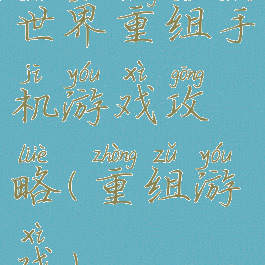 世界重组手
jī yóu xì gōng
机游戏攻
lüè zhòng zǔ yóu
略(重组游
xì
戏)